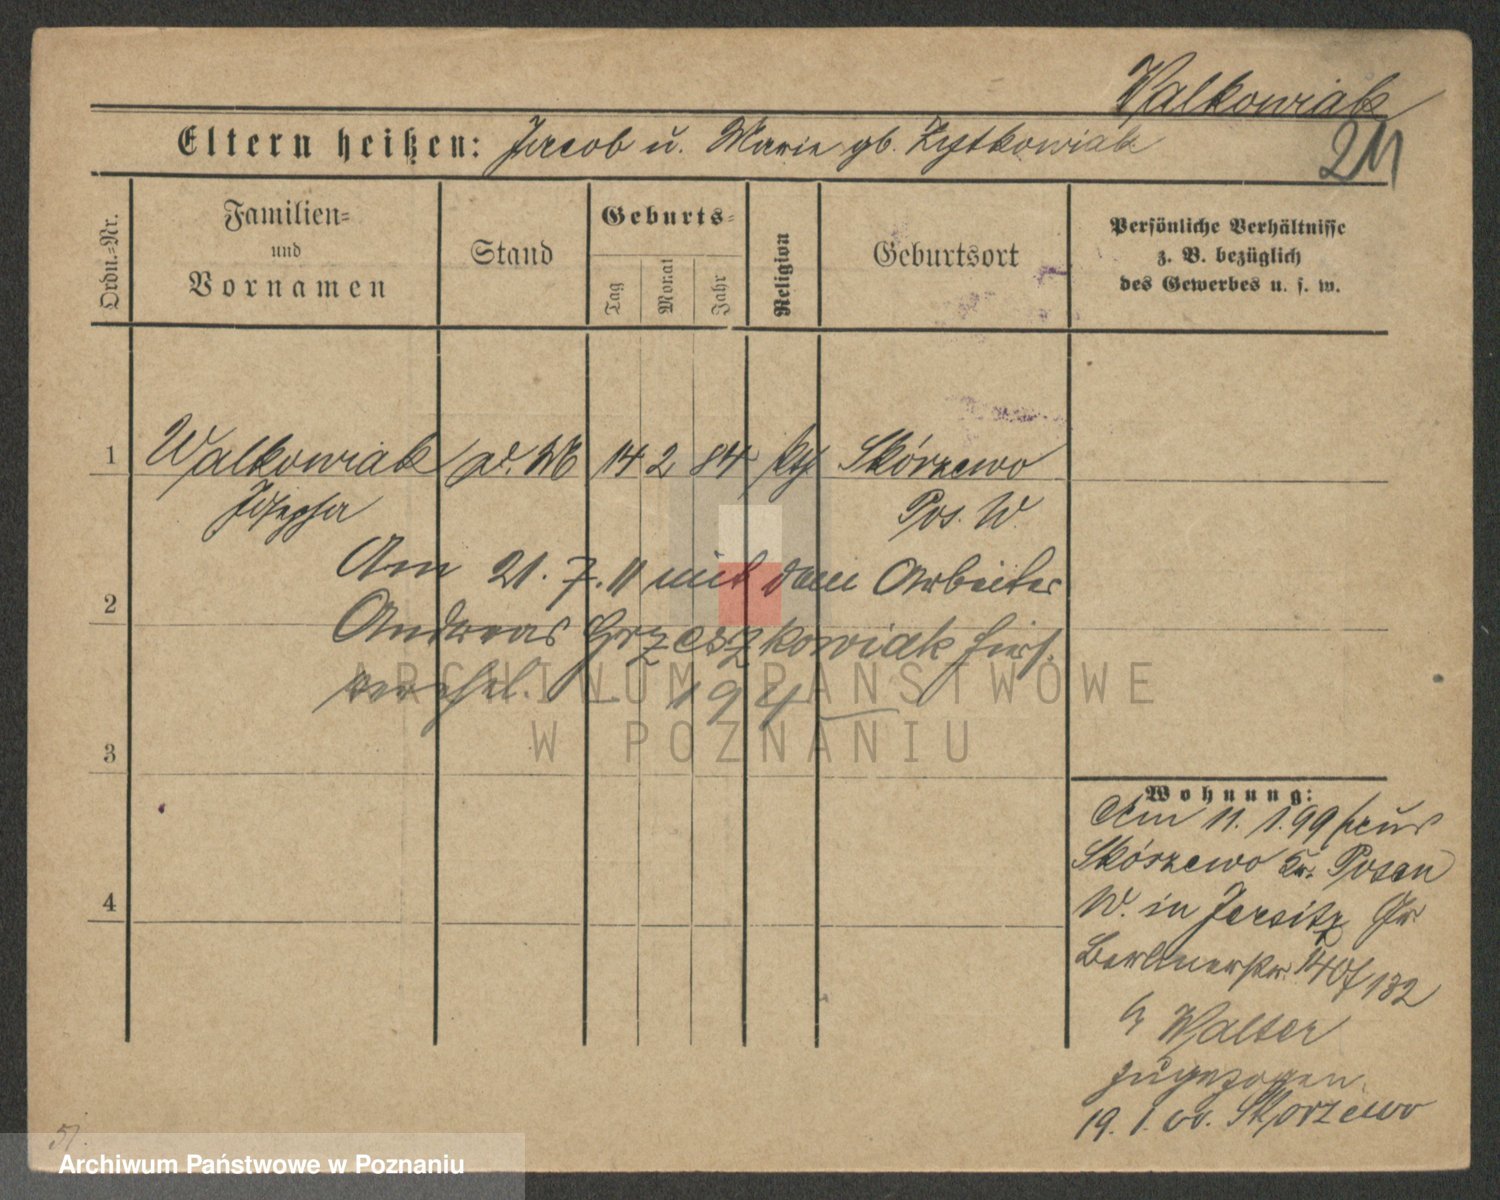 Walkowiak
211
Eltern heißen: Jacob u. Marie gb. Zystkowiak
Ordn.=Nr.
Familien=
und
Vornamen
Stand
Geburts=
Tag
Monat
Jahr
Religion
Geburtsort
Persönliche Verhältnisse
z. B. bezüglich
des Gewerbes u. s. w.
1 Walkowiak d. M 14 2 84 kth Skórzewo
Josepha Pos. W.
Am 21. 7. 11 mit dem Arbeiter
2
Andreas Grzeszkowiak hier
verehel. 194
3
4
Wohnung:
Am 11. 1. 99 aus
Skórzewo Kr. Posen
W. in Jersitz Gr
Berlinerstr. 140f/132
b Walter
zugezogen.
19. 1. 00. Skorzewo
51.
ARCHIWUM PAŃSTWOWE
W POZNANIU
Archiwum Państwowe w Poznaniu